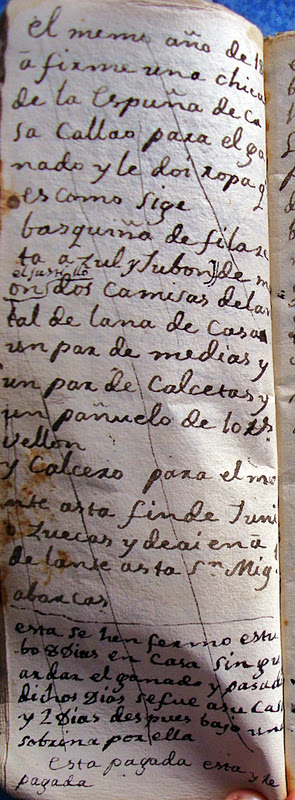 el meme año de 18
a firme una chica
de la Espuña de Ca
sa Callao para el ga
nado y le doi ropa q
es como sige
basquiña de filaz
ta azul y Jubon de m
el justillo
on dos camisas delan
tal de lana de casa
un par de medias y
un par de Calcetas y
un pañuelo de 10 Rs
vellon
y Calcero para el mo
nte asta fin de Juni
o zuecas y de ai en a
delante asta Sn Mig
abarcas
esta se henfermo estu
bo 8 Dias en casa sin gu
ardar el ganado y pasad
dichos Dias se fue a su Cas
y 2 Dias despues bajo una
sobrina por ella
esta pagada esta y le
pagada